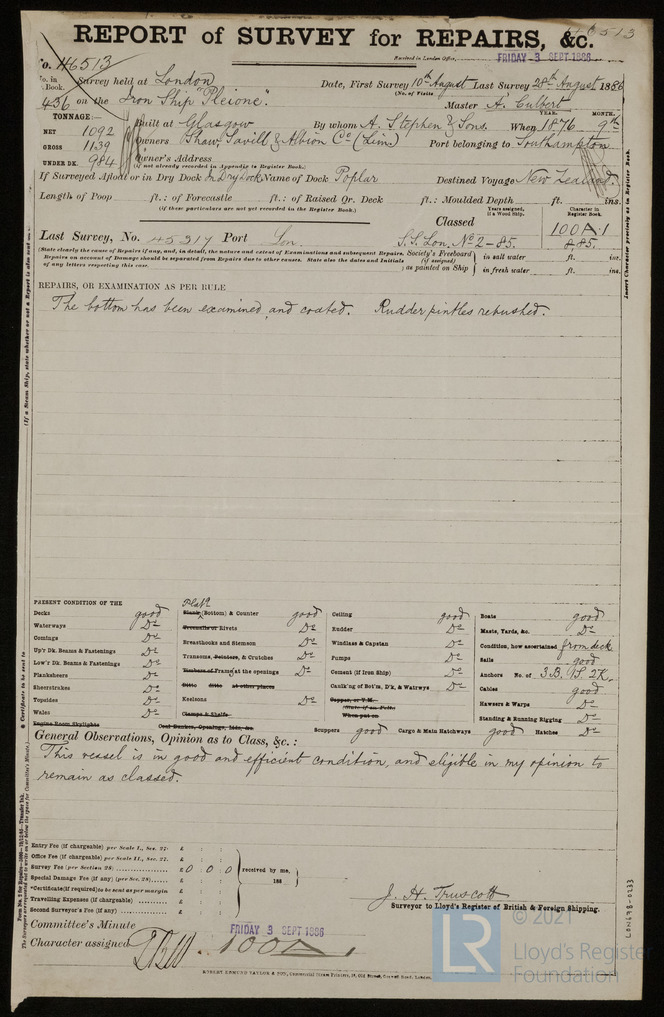 46513
REPORT of SURVEY for REPAIRS, &c.
No. 46513
Received in London Office, FRIDAY 3 SEPT 1886
No. in Book. Survey held at London Date, First Survey 10th August Last Survey 28th August 1886
(No. of Visits )
436 on the Iron Ship "Pleione". Master A. Culbert
TONNAGE:— Built at Glasgow By whom A. Stephen & Sons When 1876 9th
YEAR. MONTH.
NET 1092
GROSS 1139 Owners Shaw, Savill & Albion Co (Lim) Port belonging to Southampton
UNDER DK. 984 Owner's Address
(If not already recorded in Appendix to Register Book.)
If Surveyed Afloat or in Dry Dock In Dry Dock Name of Dock Poplar Destined Voyage New Zealand.
Length of Poop ft.: of Forecastle ft.: of Raised Qr. Deck ft.: Moulded Depth ft. ins.
(If these particulars are not yet recorded in the Register Book.)
Classed Years assigned, if a Wood Ship. Character in Register Book.
100A1
Last Survey, No. 45217 Port Lon. S.S. Lon. No 2-85. 8,85.
(State clearly the cause of Repairs if any, and, in detail, the nature and extent of Examinations and subsequent Repairs.
Repairs on account of Damage should be separated from Repairs due to other causes. State also the dates and Initials
of any letters respecting this case.
Society's Freeboard (if assigned) as painted on Ship in salt water ft. ins.
in fresh water ft. ins.
REPAIRS, OR EXAMINATION AS PER RULE
The bottom has been examined, and coated. Rudder pintles rebushed.
PRESENT CONDITION OF THE
Decks good
Waterways Do
Comings Do
Up'r Dk. Beams & Fastenings Do
Low'r Dk. Beams & Fastenings Do
Planksheers Do
Sheerstrakes Do
Topsides Do
Wales Do
Engine Room Skylights
Plate
Plank (Bottom) & Counter good
Treenails or Rivets Do
Breasthooks and Stemson Do
Transoms, Pointers, & Crutches Do
Timbers of Frame at the openings Do
Ditto Ditto at other places
Keelsons Do
Clamps & Shelfs
Coal Bunker, Openings, Lids, &c.
Ceiling good
Rudder Do
Windlass & Capstan Do
Pumps Do
Cement (if Iron Ship) Do
Caulk'ng of Bot'm, D'k, & Watrwys Do
Copper, or Y.M.
When put on
Scuppers good Cargo & Main Hatchways good Hatches Do
Boats good
Masts, Yards, &c. Do
Condition, how ascertained from deck
Sails good
Anchors No. of 3B. 1S. 2K.
Cables good
Hawsers & Warps Do
Standing & Running Rigging Do
General Observations, Opinion as to Class, &c.:
This vessel is in good and efficient condition, and eligible in my opinion to
remain as classed.
Entry Fee (if chargeable) per Scale I., Sec. 27. £ : :
Office Fee (if chargeable) per Scale II., Sec. 27. £ : :
Survey Fee (per Section 28) £ 0 0 0
Special Damage Fee (if any) (per Sec. 28) £ : :
*Certificate (if required) to be sent as per margin £ : :
Travelling Expenses (if chargeable) £ : :
Second Surveyor's Fee (if any) £ : :
received by me,
188
J. H. Truscott
Surveyor to Lloyd's Register of British & Foreign Shipping.
Committee's Minute FRIDAY 3 SEPT 1886
Character assigned 100A1
© 2021
LR
Lloyd's Register
Foundation
LON698-0233
(If a Steam Ship, state whether or not a Report is also sent on
Insert Character precisely as in Register Book.
* Certificate to be sent to